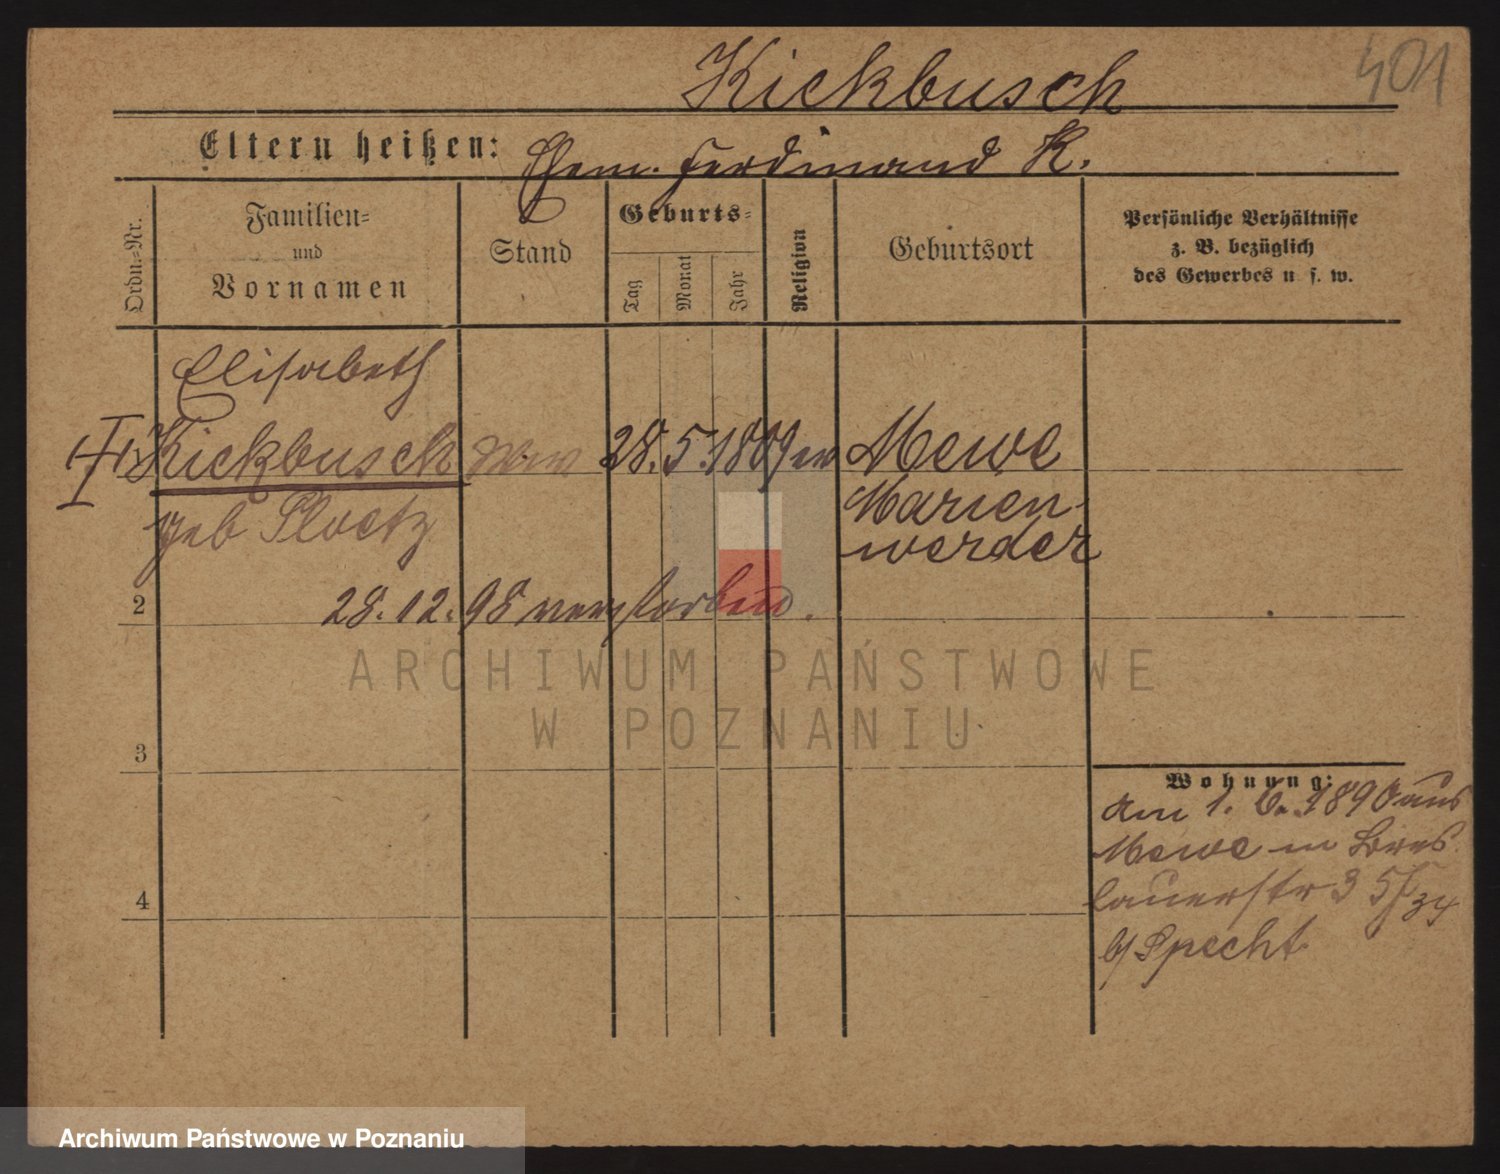 401
Kickbusch
Eltern heißen: Ehem. Ferdinand K.
Ordn.-Nr.
Familien-
und
Vornamen
Stand
Geburts-
Tag
Monat
Jahr
Religion
Geburtsort
Persönliche Verhältnisse
z. B. bezüglich
des Gewerbes u. s. w.
Elisabeth
Kickbusch Wwe 28. 5. 1809 ev Mewe
geb Ploetz
Marien-
werder
2
28. 12. 98 verstorben.
ARCHIWUM PAŃSTWOWE
W POZNANIU
3
4
Wohnung:
Am 1. 6. 1890 aus
Mewe in Bres
lauerstr 35
b/ Specht
Archiwum Państwowe w Poznaniu